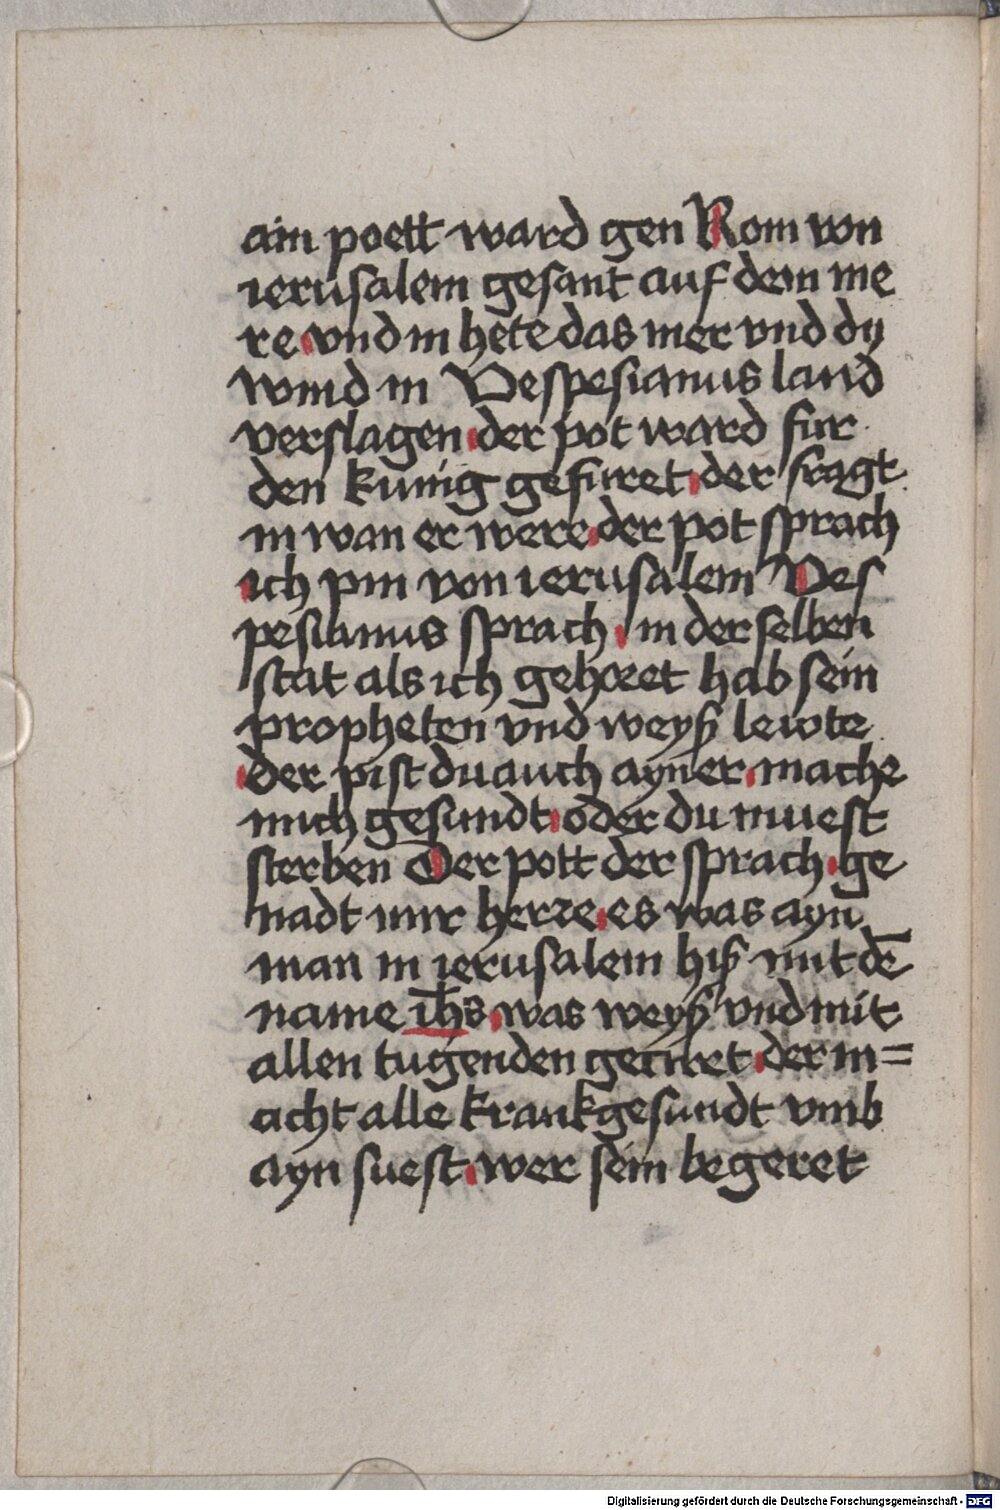 ain poett ward gen Rom von
ierusalem gesant auf dem me
re vnd in hete das mer vnd dy
wind in Vespesianus land
verslagen der pot ward fur
den kunig gefuret der fragt
in wan er were der pot sprach
ich pin von ierusalem Ves
pesianus sprach in der selben
stat als ich gehoret hab sein
propheten vnd weyß lewte
der pist du auch ayner mache
mich gesundt oder du muest
sterben Der pott der sprach ge
nadt mir herre es was ayn
man in ierusalem hiß mit dē
name ih̄s was weyß vnd mit
allen tugenden geciret der m=
acht alle krank gesundt vmb
ayn suest wer sein begeret
Digitalisierung gefördert durch die Deutsche Forschungsgemeinschaft - DFG